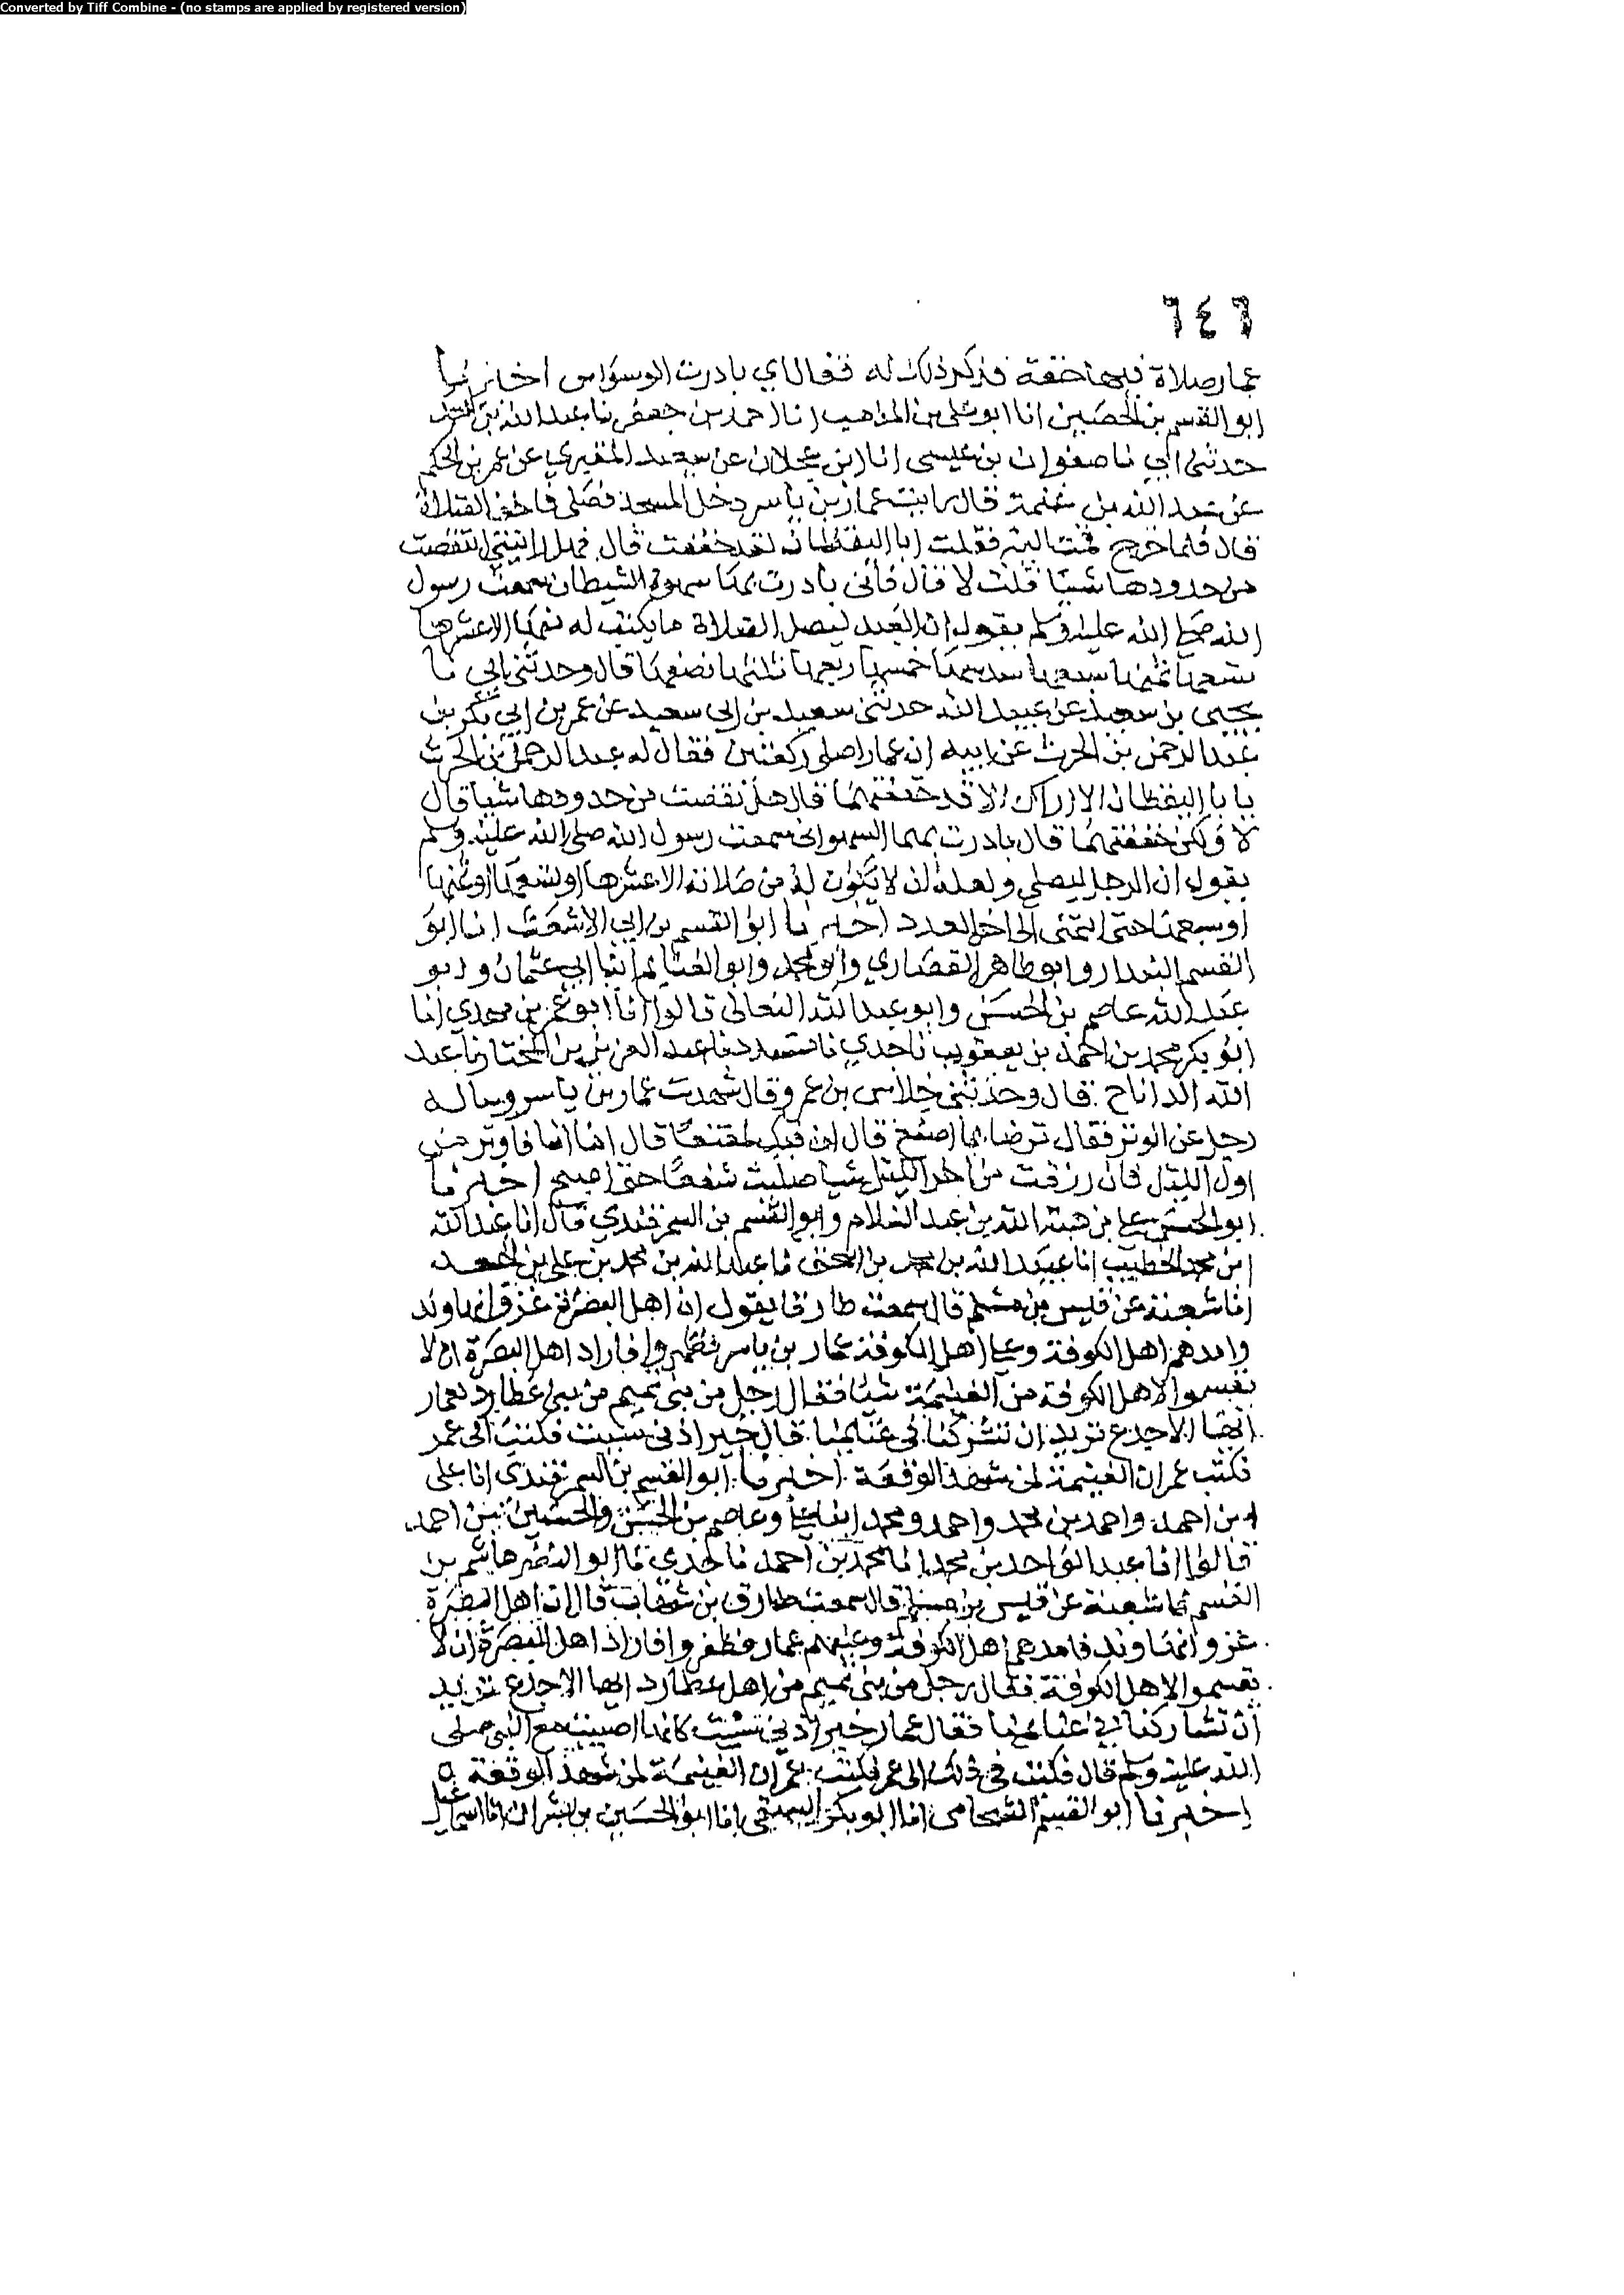 Converted by Tiff Combine - (no stamps are applied by registered version)
٦٤٦
عمار صلاة فيها خفة فذكر ذلك له فقال اي بادرت الوسواس اخبرنا
ابو القسم بن الحصين انا ابو علي بن المذهب انا احمد بن جعفر نا عبد الله بن احمد
حدثني ابي نا صفوان بن عيسى انا ابن عجلان عن سعيد المقبري عن عمر بن الحكم
عن عبد الله بن عنمة قال رايت عمار بن ياسر دخل المسجد فصلى فاخف الصلاة
قال فلما خرج قمت اليه فقلت يا ابا اليقظان لقد خففت قال فهل رايتني انتقصت
من حدودها شيئا قلت لا قال فاني بادرت بها سهوة الشيطان سمعت رسول
الله صلى الله عليه وسلم يقول ان العبد ليصل الصلاة ما يكتب له منها الا عشرها
تسعها ثمنها سبعها سدسها خمسها ربعها ثلثها نصفها قال وحدثني ابي نا
يحيى بن سعيد عن عبيد الله حدثني سعيد بن ابي سعيد عن عمر بن ابي بكر بن
عبد الرحمن بن الحرث عن ابيه ان عمارا صلى ركعتين فقال له عبد الرحمن بن الحرث
يا با اليقظان لا اراك الا قد خففتهما قال هل نقصت من حدودها شيئا قال
لا ولكن خففتهما قال بادرت بهما السهو اني سمعت رسول الله صلى الله عليه وسلم
يقول ان الرجل ليصلي ولعله ان لا يكون له من صلاته الا عشرها او تسعها او ثمنها
او سبعها حتى انتهى الى اخر العدد اخبرنا ابو القسم بن ابي الاشعث انا ابو
القسم البندار وابو طاهر القصاري وابو محمد وابو الغنايم ابنا ابي عثمان وابو
عبد الله عاصم بن الحسن وابو عبد الله النعالي قالوا انا ابو عمر بن مهدي انا
ابو بكر محمد بن احمد بن يعقوب نا جدي نا مسدد نا عبد العزيز بن المختار نا عبد
الله الداناج قال وحدثني خلاس بن عمرو قال شهدت عمار بن ياسر وساله
رجل عن الوتر فقال ترضا بما اصنع قال ان فيك لمقنعا قال اما انا فاوتر من
اول الليل فان رزقت من اخر الليل شيا صليت شفعا حتى اصبح اخبرنا
ابو الحسن علي بن هبة الله بن عبد السلام وابو القسم بن السمرقندي قال انا عبد الله
ابن محمد الخطيب انا عبيد الله بن محمد بن اسحق نا عبد الله بن محمد بن علي بن الجعد
انا شعبة عن قيس بن مسلم قال سمعت طارقا يقول ان اهل البصرة غزوا نهاوند
وامدهم اهل الكوفة وعلى اهل الكوفة عمار بن ياسر فظهروا فاراد اهل البصرة ان لا
يقسموا لاهل الكوفة من الغنيمة شيا فقال رجل من بني تميم من بني عطارد لعمار
ايها الاجدع تريد ان تشركنا في غنايمنا قال خير اذني سبيت فكتب الى عمر
فكتب عمر ان الغنيمة لمن شهد الوقعة اخبرنا ابو القسم بن السمرقندي انا علي
ابن احمد واحمد بن محمد واحمد ومحمد ابنا علي وعاصم بن الحسن والحسين بن احمد
قالوا انا عبد الواحد بن محمد انا محمد بن احمد نا جدي نا ابو النضر هاشم بن
القسم نا شعبة عن قيس بن مسلم قال سمعت طارق بن شهاب قال ان اهل البصرة
غزوا نهاوند فامدهم اهل الكوفة وعليهم عمار فظفروا فاراد اهل البصرة ان لا
يقسموا لاهل الكوفة فقال رجل من بني تميم من اهل عطارد ايها الاجدع تريد
ان تشاركنا في غنايمنا فقال عمار خير اذني سببت كانها اصيبت مع النبي صلى
الله عليه وسلم قال فكتب في ذلك الى عمر فكتب عمر ان الغنيمة لمن شهد الوقعة ه
اخبرنا ابو القسم الشحامي انا ابو بكر البيهقي انا ابو الحسين بن بشران انا اسماعيل